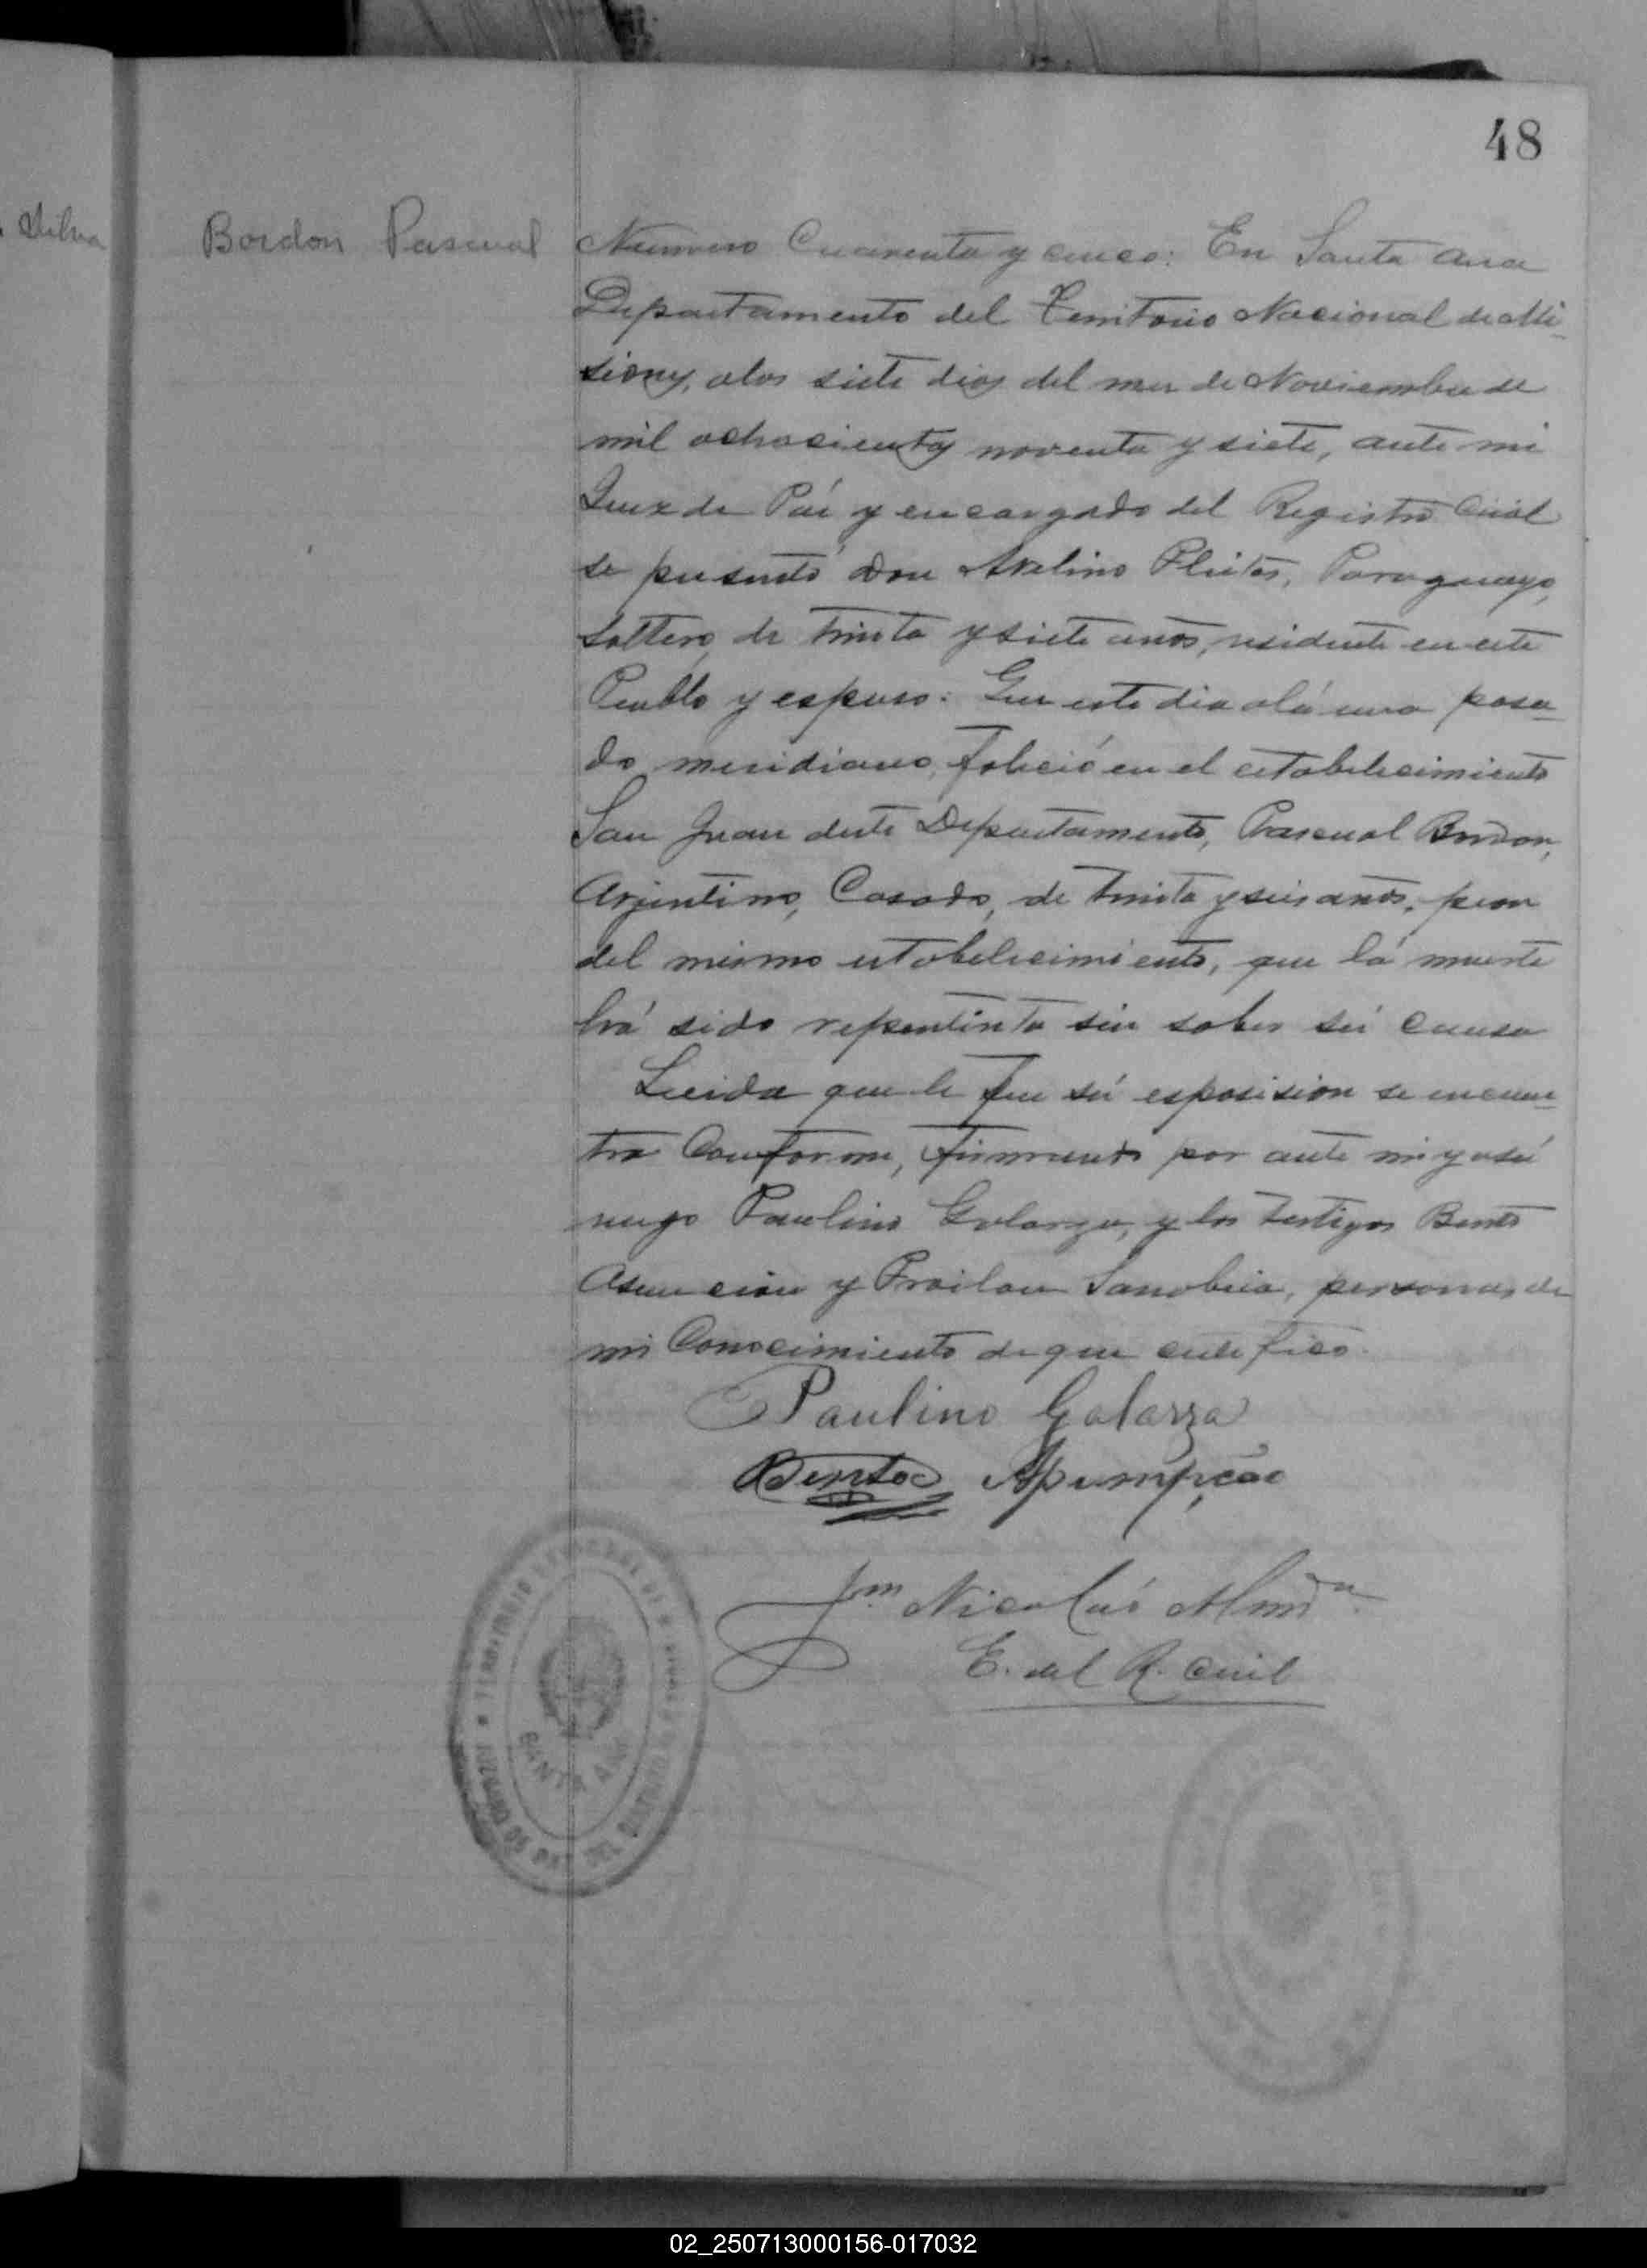 48
Silva
Bordon Pascual
Número Cuarenta y cinco: En Santa Ana
Departamento del Territorio Nacional de Mi-
siones, alos siete dias del mes de Noviembre de
mil ochocientos noventa y siete, ante mi
Juez de Páz y encargado del Registro Civil
se presentó Don Avelino Fleitas, Paraguayo,
soltero, de trinta y siete años, residente en este
Pueblo y espuso: Que este dia alá una pasa-
do meridiano, falició en el establecimiento
San Juan deste Departamento, Pascual Bordon,
Arjentino, Casado, de trinta y seis años, peon
del mismo establecimiento, que lá muerte
há sido repentinta sin saber sú causa
Leida que le fue sú esposision se encuen-
tra Conforme, firmando por ante mi y asú
ruego Paulino Galarza, y los testigos Bento
Asuncion y Froilan Sanabria, personas de
mi Conocimiento de que certifico.
Paulino Galarza
Bento Asumpção
Nicolás
E. del R. Civil
TERRITORIO NACIONAL DE MISIONES
JUZGADO DE PAZ DEL DISTRITO
SANTA ANA
02_250713000156-017032